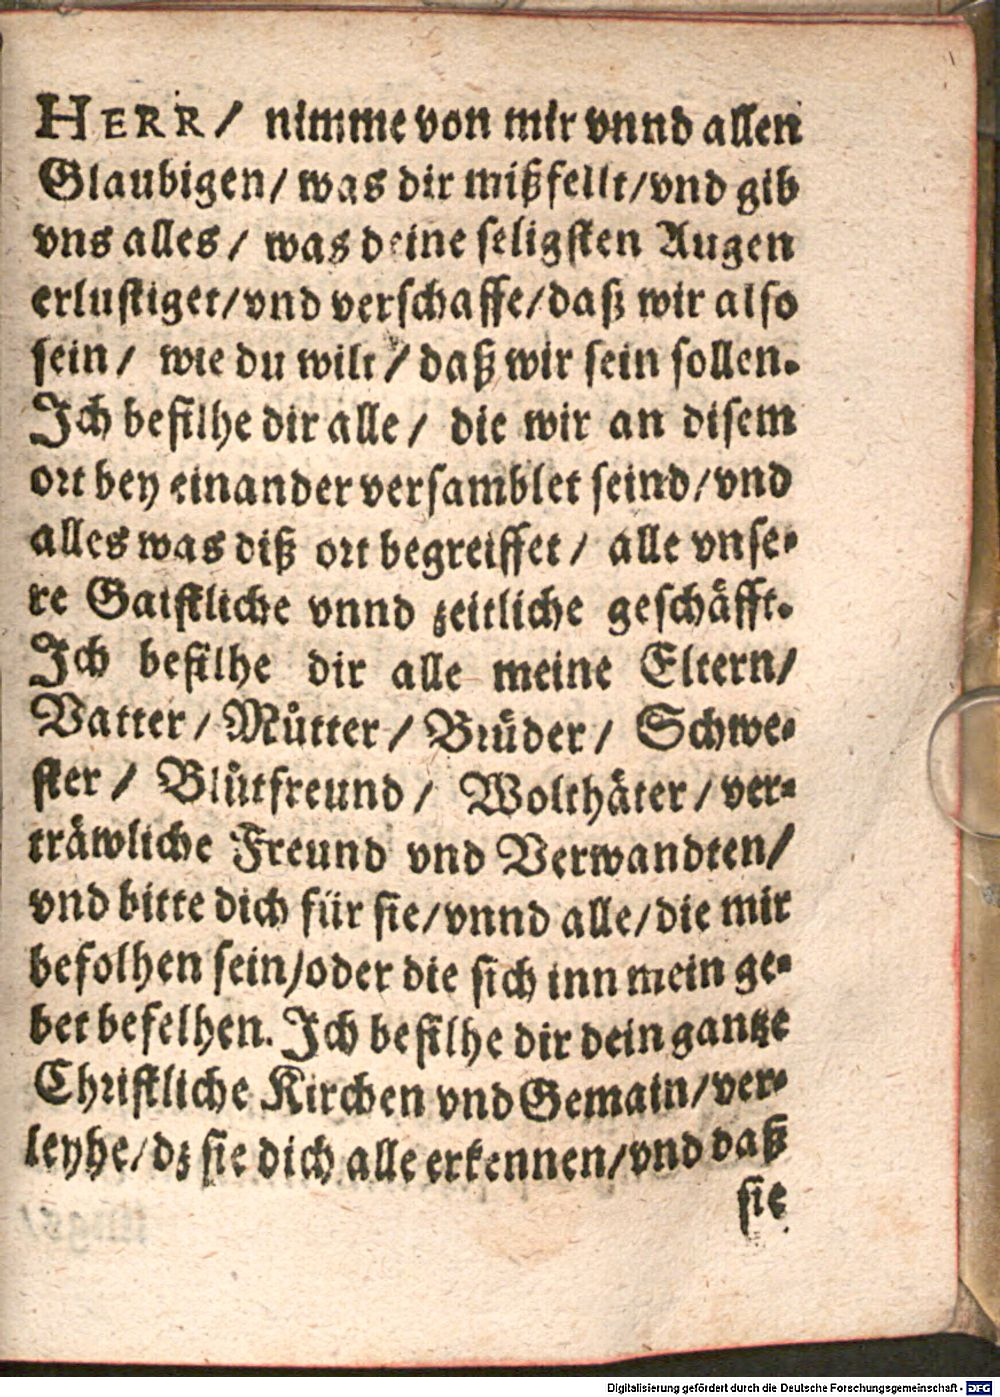 HERR/ nimme von mir vnnd allen
Glaubigen/ was dir mißfellt/vnd gib
vns alles/ was deine seligsten Augen
erlustiget/vnd verschaffe/daß wir also
sein/ wie du wilt/ daß wir sein sollen.
Ich befilhe dir alle/ die wir an disem
ort bey einander versamblet seind/vnd
alles was diß ort begreiffet/ alle vnse-
re Gaistliche vnnd zeitliche geschäfft.
Ich befilhe dir alle meine Eltern/
Vatter/ Můtter/ Brüder/ Schwe-
ster/ Blůtfreund/ Wolthäter/ ver-
träwliche Freund vnd Verwandten/
vnd bitte dich für sie/vnnd alle/die mir
befolhen sein/oder die sich inn mein ge-
bet befelhen. Ich befilhe dir dein gantze
Christliche Kirchen vnd Gemain/ver-
leyhe/dz sie dich alle erkennen/vnd daß
sie
Digitalisierung gefördert durch die Deutsche Forschungsgemeinschaft - DFG